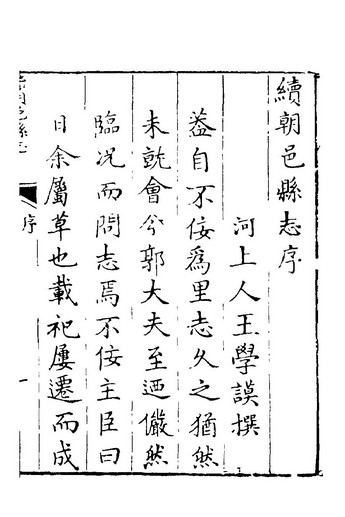 續朝邑縣志序
河上人王學謨撰
葢自不佞爲里志久之猶然
未就會兮郭大夫至迺儼然
臨况而問志焉不佞主臣曰
日余屬草也載祀屢遷而成
序
一